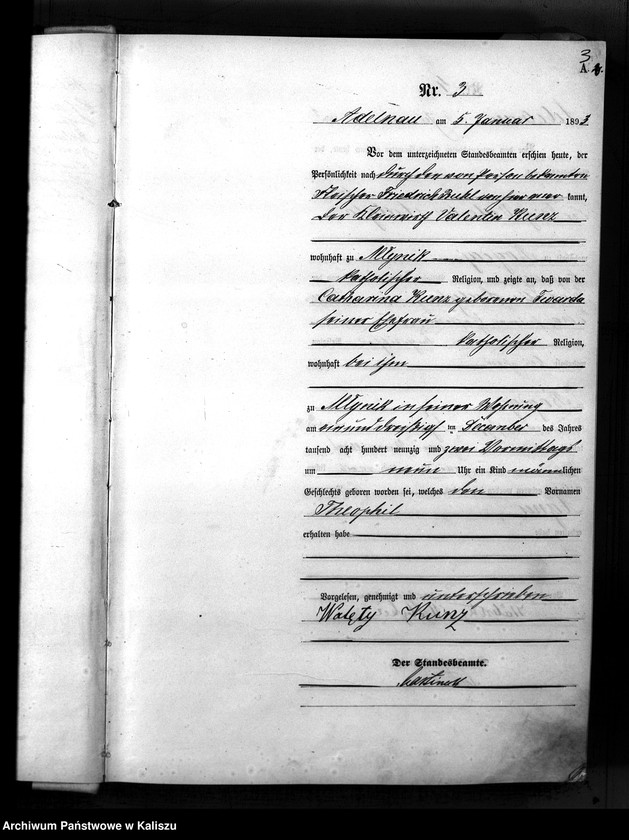 3.
A.
Nr. 3
Adelnau am 5. Januar 1893
Vor dem unterzeichneten Standesbeamten erschien heute, der
Persönlichkeit nach durch den von Person bekannten
Fleischer Friedrich von hier aner kannt,
der Kleinwirth Valentin Kunz
wohnhaft zu Mlynik
katholischer Religion, und zeigte an, daß von der
Catharina Kunz geborenen Twarda
seiner Ehefrau
katholischer Religion,
wohnhaft bei ihm
zu Mlynik in seiner Wohnung
am einunddreißigsten December des Jahres
tausend acht hundert neunzig und zwei Vormittags
um neun Uhr ein Kind männlichen
Geschlechts geboren worden sei, welches den Vornamen
Theophil
erhalten habe
Vorgelesen, genehmigt und unterschrieben
Walęty Kunz
Der Standesbeamte.
Archiwum Państwowe w Kaliszu